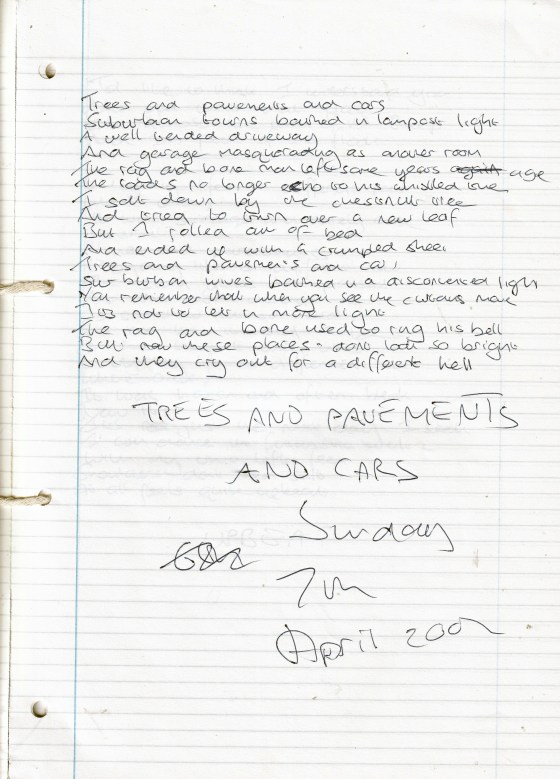 Trees and pavements and cars
Suburban towns bathed in lampost light
A well tended driveway
And garage masquerading as another room
The rag and bone man left some years again age
The roads no longer echo to his whistled tune
I sat down by the chestnut tree
And tried to turn over a new leaf
But I rolled out of bed
And ended up with a crumpled sheet
Trees and pavements and cars
Surburban wives bathed in a disconnected light
You remember that when you see the curtains move
It's not to let in more light
The rag and bone used to ring his bell
But now these places dont look so bright
And they cry out for a different hell
TREES AND PAVEMENTS
AND CARS
Sunday
7th
April 2002